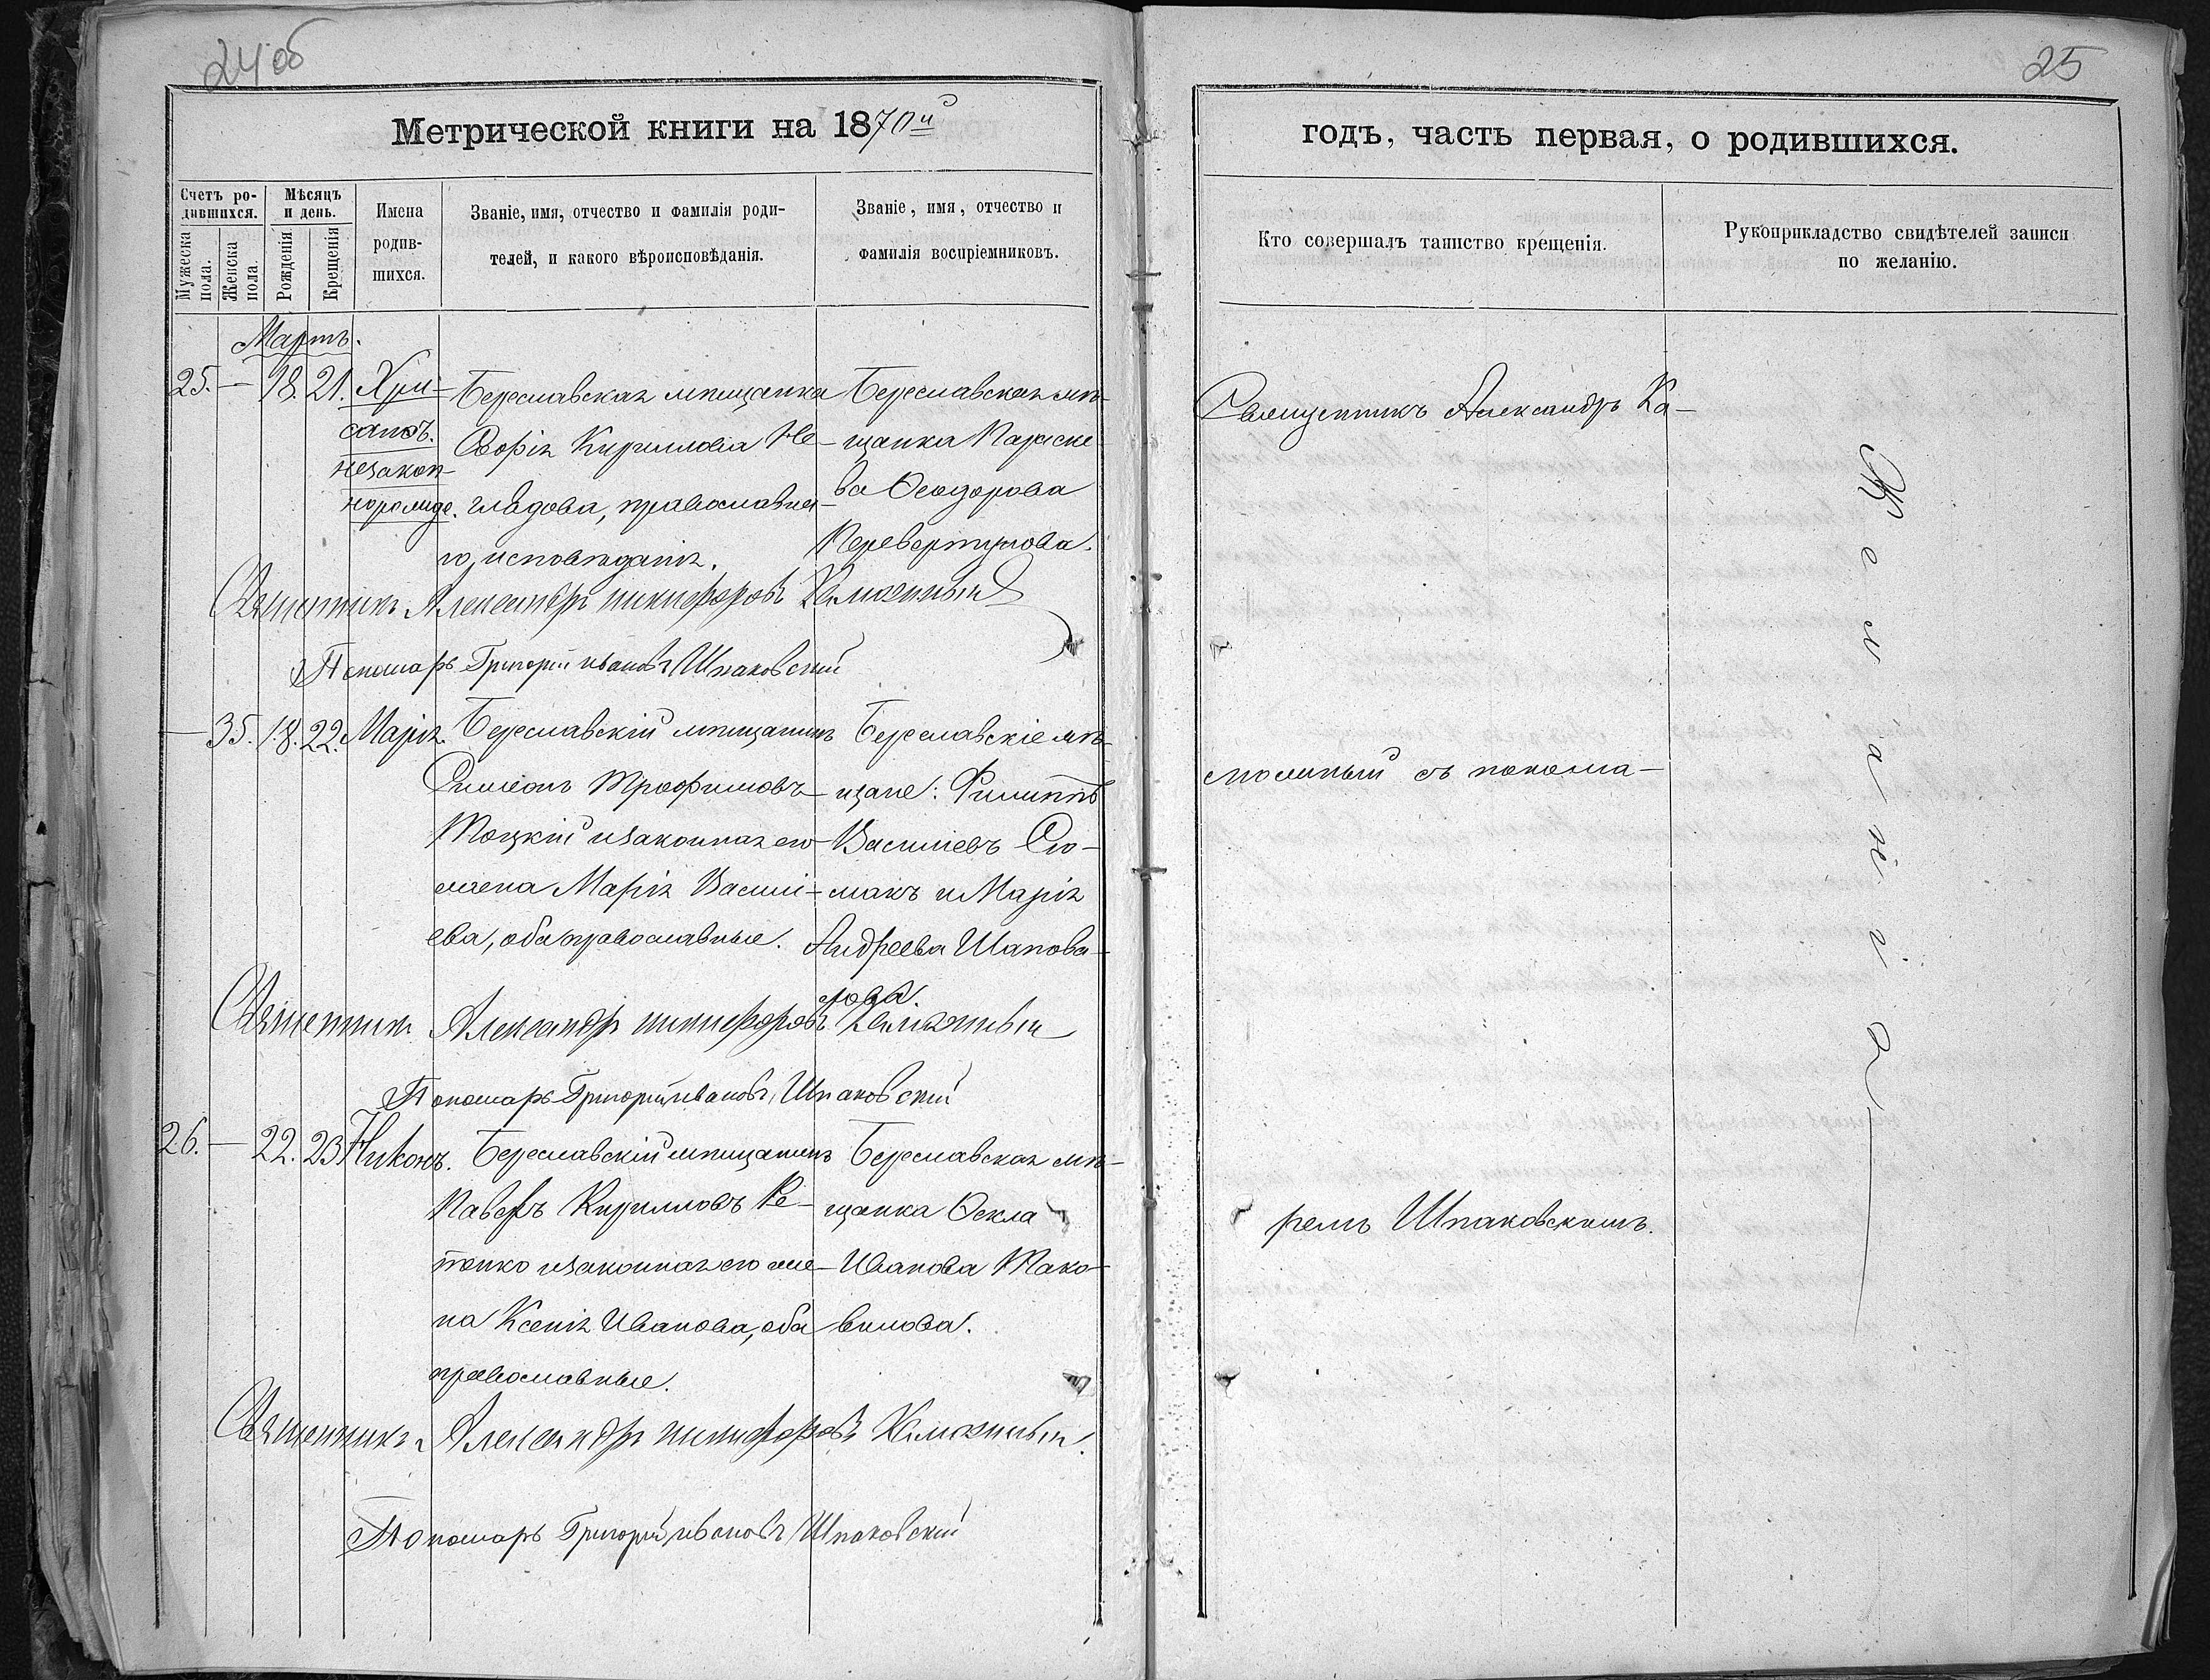 24 об
25
Метрической книги на 1870й
годъ, часть первая, о родившихся.
Счетъ ро-
дившихся.
Мужеска пола.
Женска пола.
Мѣсяцъ
и день.
Рожденія
Крещенія
Имена
родив-
шихся.
Званіе, имя, отчество и фамилія роди-
телей, и какого вѣроисповѣданія.
Званіе, имя, отчество и
фамилія воспріемниковъ.
Кто совершалъ таинство крещенія.
Рукоприкладство свидѣтелей записи
по желанію.
Мартъ.
25. — 18. 21. Хри-
санѳъ.
незакон-
норожде.
Береславская мѣщанка
Софія Кириллова Не-
глядова, православна-
го исповѣданія.
Береславская мѣ-
щанка Параске-
ва Ѳеодорова
Перевертунова.
Священникъ Александръ Никифоровъ
Пономарь Григорій Ивановъ Шпаковскій
— 35. 18. 22. Марія.
Береславскій мѣщанинъ
Симеонъ Трофимовъ
Тоцкій и законная его
жена Марія Василі-
ева, оба православные.
Береславскіе мѣ-
щане: Филиппъ
Василіевъ
и Марія
Андреева Шапова-
лова.
Священникъ Александръ Никифоровъ
Пономарь Григорій Ивановъ Шпаковскій
26. — 22. 23 Никонъ.
Береславскій мѣщанинъ
Павелъ Кирилловъ Ре-
тенко и законная его же-
на Ксенія Иванова, оба
православные.
Береславская мѣ-
щанка Ѳекла
Иванова Тако-
вилова.
Священникъ Александръ Никифоровъ
Пономарь Григорій Ивановъ Шпаковскій
Священникъ Александръ Ка-
съ понома-
ремъ Шпаковскимъ.
Желанія